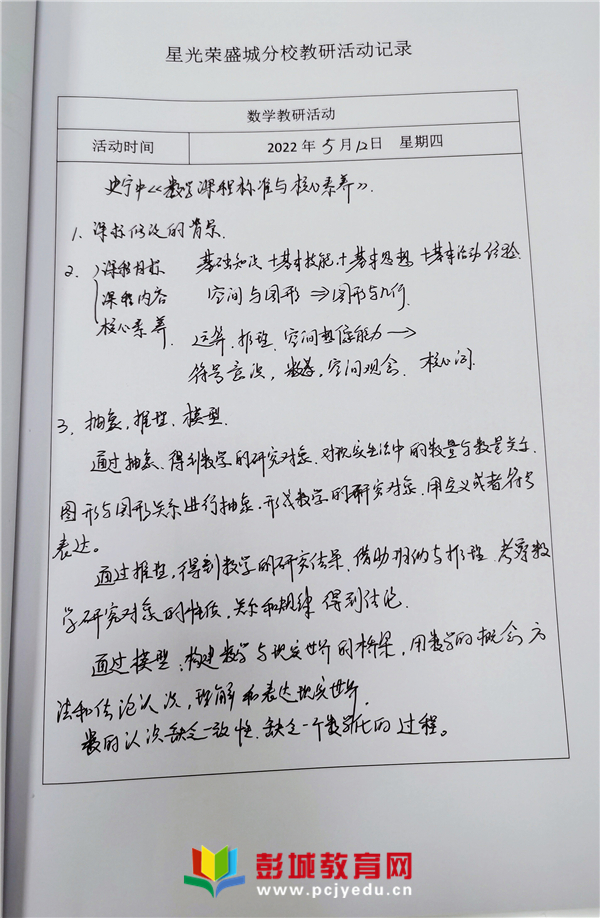 星光荣盛城分校教研活动记录
数学教研活动
活动时间 2022 年 5 月 12 日 星期四
史宁中《数学课程标准与核心素养》.
1. 课标修改的背景.
2. 课程目标 基础知识+基本技能+基本思想+基本活动经验.
课程内容 空间与图形 ⇒图形与几何.
核心素养. 运算、推理、空间想像能力→
符号意识,数感,空间观念、核心词.
3. 抽象,推理、模型.
通过抽象、得到数学的研究对象、对现实生活中的数量与数量关系.
图形与图形关系进行抽象、形成数学的研究对象、用定义或者符号
表达。
通过推理,得到数学的研究结果、借助归纳与推理、考察数
学研究对象的性质,关系和规律 得到结论.
通过模型、构建数学与现实世界的桥梁,用数学的概念 方
法和结论认识,理解和表达现实世界.
数的认识缺乏一致性、缺乏一个数学化的过程。
彭城教育网
www.pcjyedu.cn